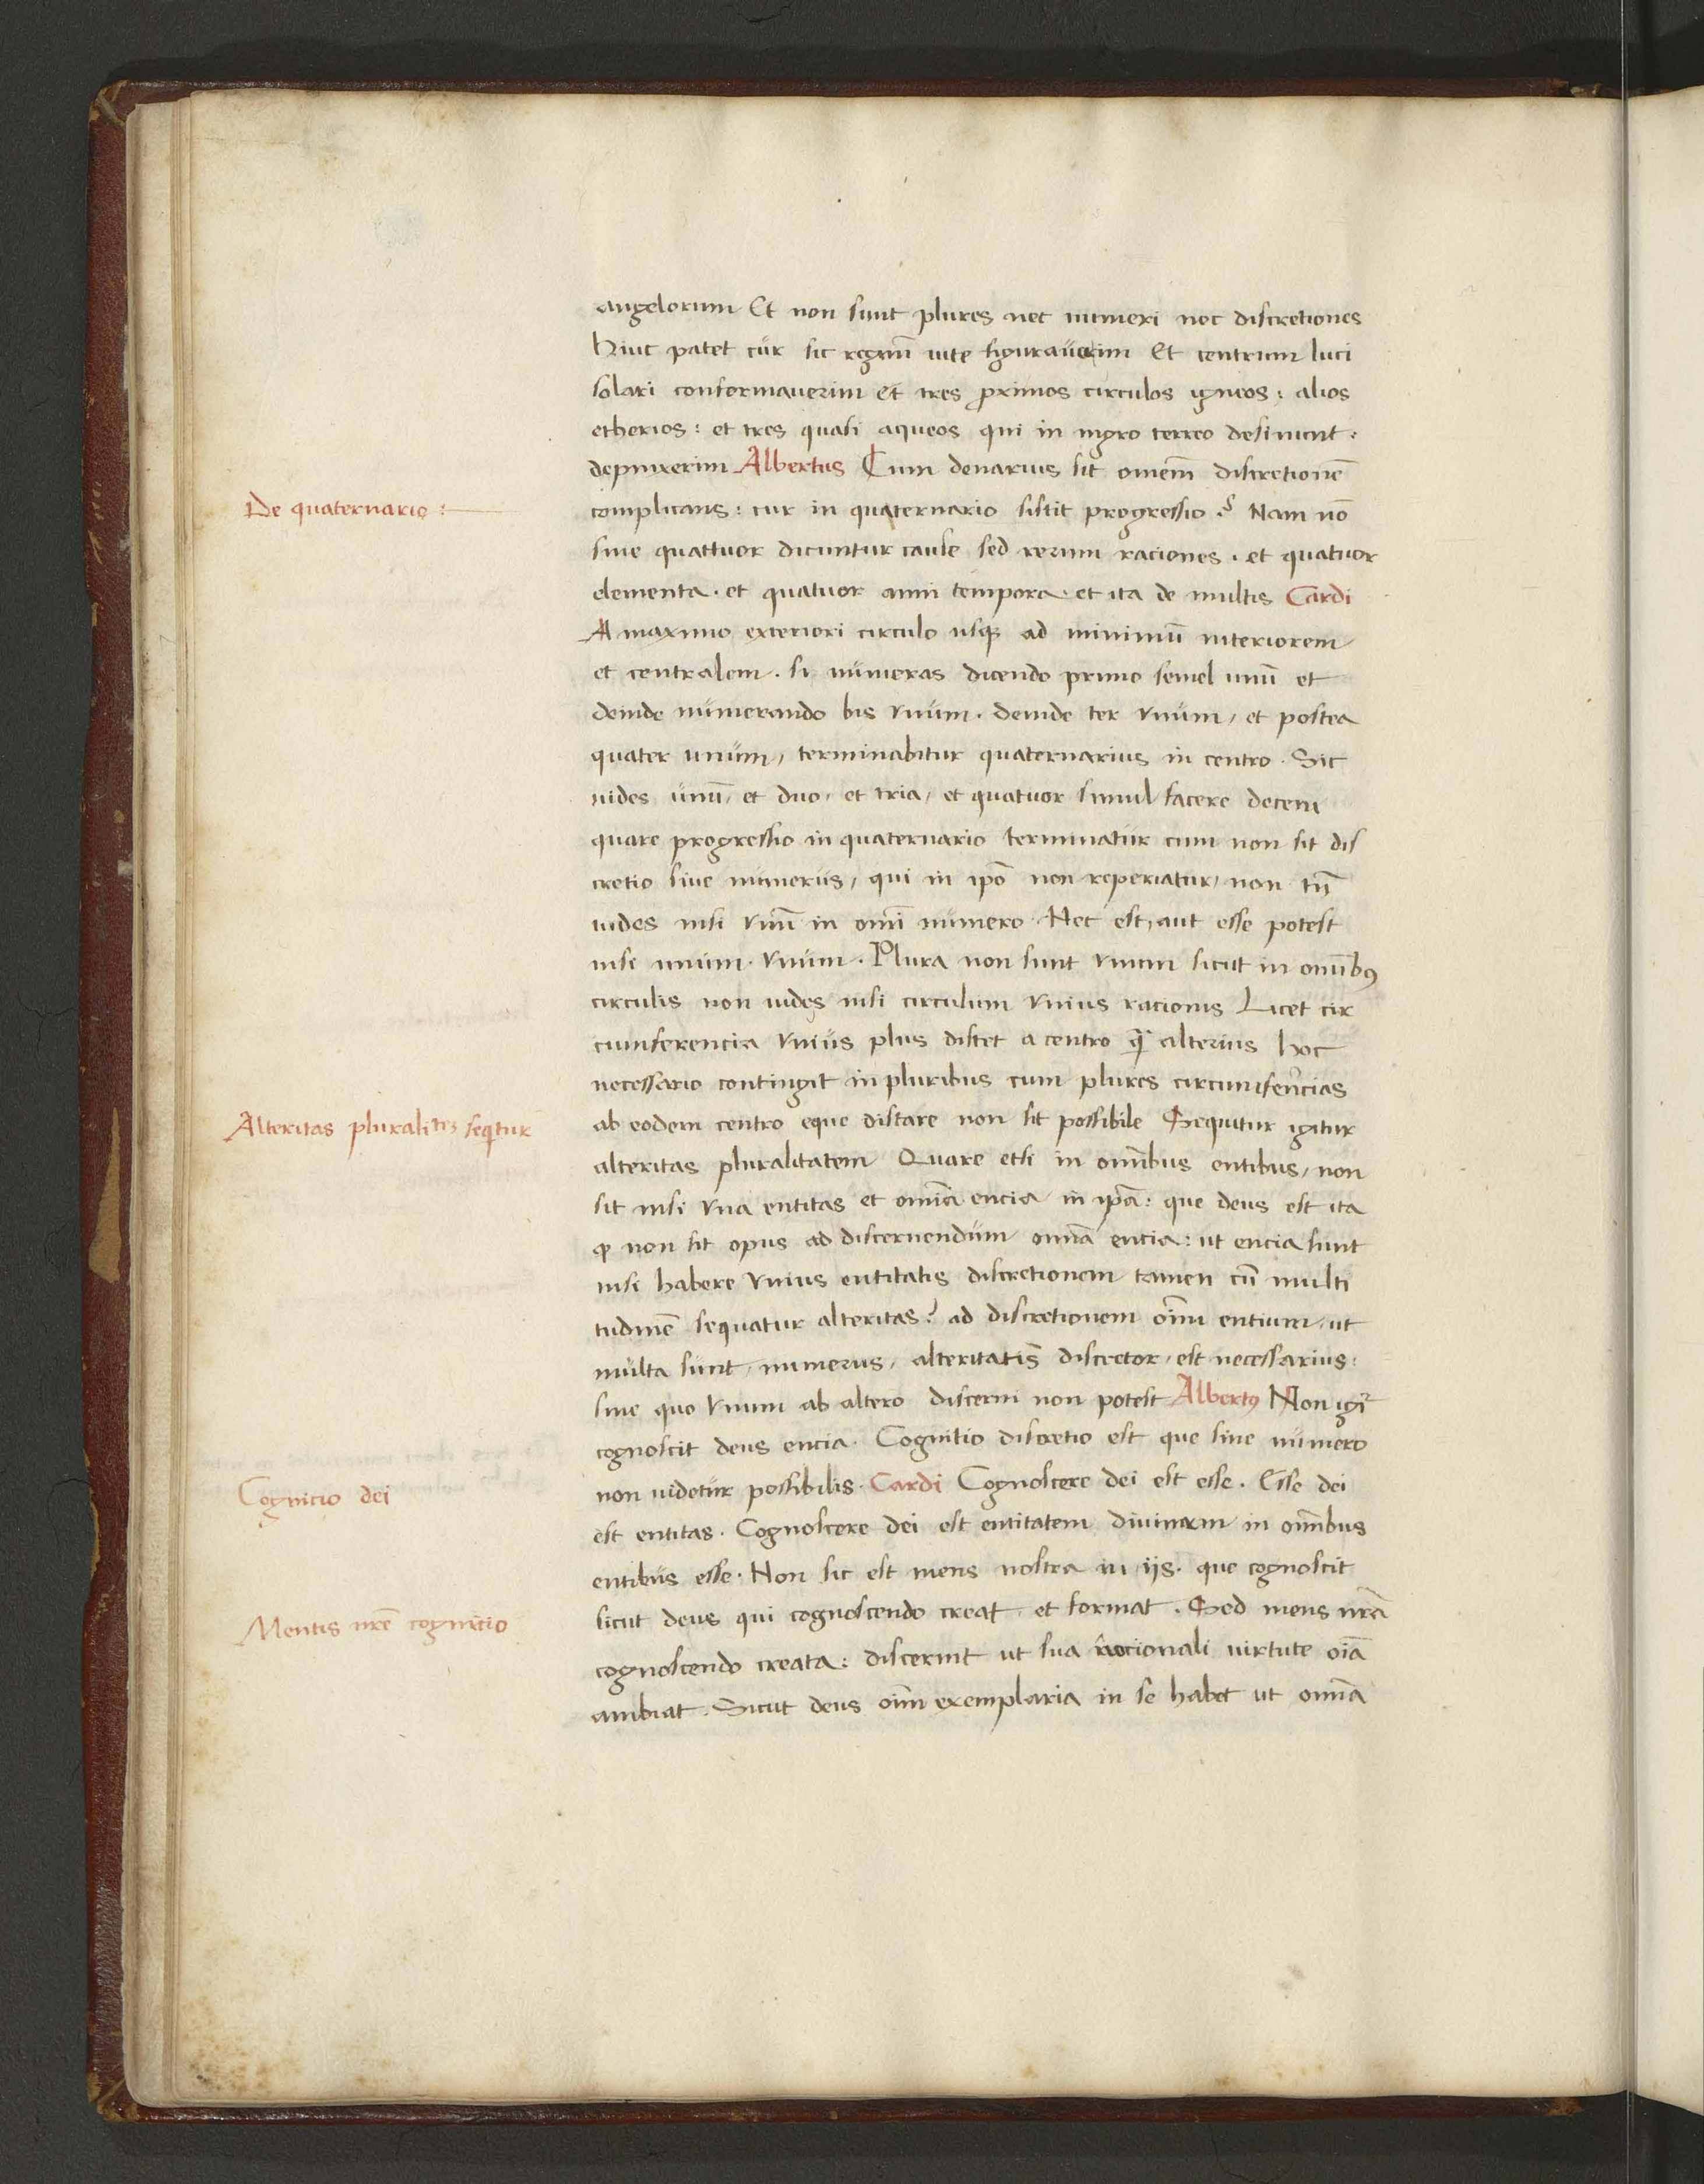 angelorum Et non sunt plures nec numeri nec discretiones
Hinc patet cur sic regnū uite figurauerim Et centrum luci
solari conformauerim et tres ꝓximos circulos igneos: alios
etherios: et tres quasi aqueos qui in nigro terreo desinunt:
depinxerim Albertus Cum denarius sit omnem̄ discretionē
De quaternario:
complicans: cur in quaternario sistit progressio? Nam nō
sine quattuor dicuntur cause sed rerum raciones. et quatuor
elementa. et quatuor anni tempora. et ita de multis Cardi
A maximo exteriori circulo usqꝫ ad minimū interiorem
et centralem. si numeras dicendo primo semel unū et
deinde numerando bis vnum. deinde ter vnum, et postea
quater unum, terminabitur quaternarius in centro. Sic
uides unū, et duo, et tria, et quatuor simul facere decem
quare progressio in quaternario terminatur cum non sit dis
cretio siue numerus, qui in ip̄o non reperiatur, non tn̄
uides nisi vnū in omī numero. Nec est, aut esse potest
nisi unum. vnum. Plura non sunt vnum sicut in omībꝰ
circulis non uides nisi circulum vnius racionis Licet cir
cumferencia vnius plus distet a centro qꝫ̄ alterius hoc
necessario contingit in pluribus cum plures circumferēcias
Alteritas pluralitꝫ seqtur
ab eodem centro eque distare non sit possibile Sequitur igitur
alteritas pluralitatem Quare etsi in omībus entibus, non
sit nisi vna entitas et omīa encia in ip̄a: que deus est ita
ꝙ non sit opus ad discernendum omīa entia: ut encia sunt
nisi habere vnius entitatis discretionem tamen cū multi
tudinē sequatur alteritas? ad discretionem oīm entium, ut
multa sunt, numerus, alteritatis discretor, est necessarius:
sine quo vnum ab altero discerni non potest Albertꝰ Non igr̄
cognoscit deus encia. Cognitio discretio est que sine numero
Cognicio dei
non uidetur possibilis. Cardi Cognoscere dei est esse. Esse dei
est entitas. Cognoscere dei est entitatem diuinam in omībus
entibus esse. Non sic est mens nostra in ijs. que cognoscit
Mentis nrē cognicio
sicut deus qui cognoscendo creat et format. Sed mens nr̄a
cognoscendo creata: discernit ut sua racionali uirtute oīa
ambiat. Sicut deus oīm exemplaria in se habet ut omīa